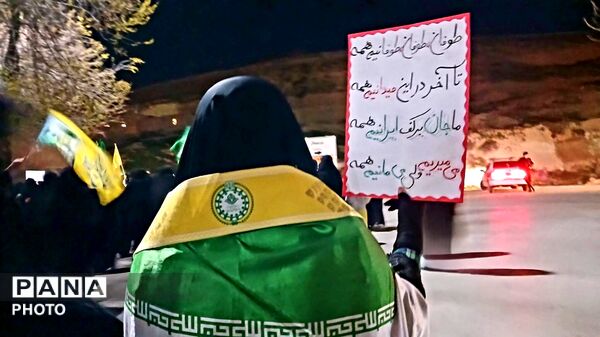 طوفان طوفان طوفانیم همه
تا آخر در این میدانیم همه
ما جان بر کف ایرانیم همه
می میریم ولی می مانیم همه
PANA
PHOTO